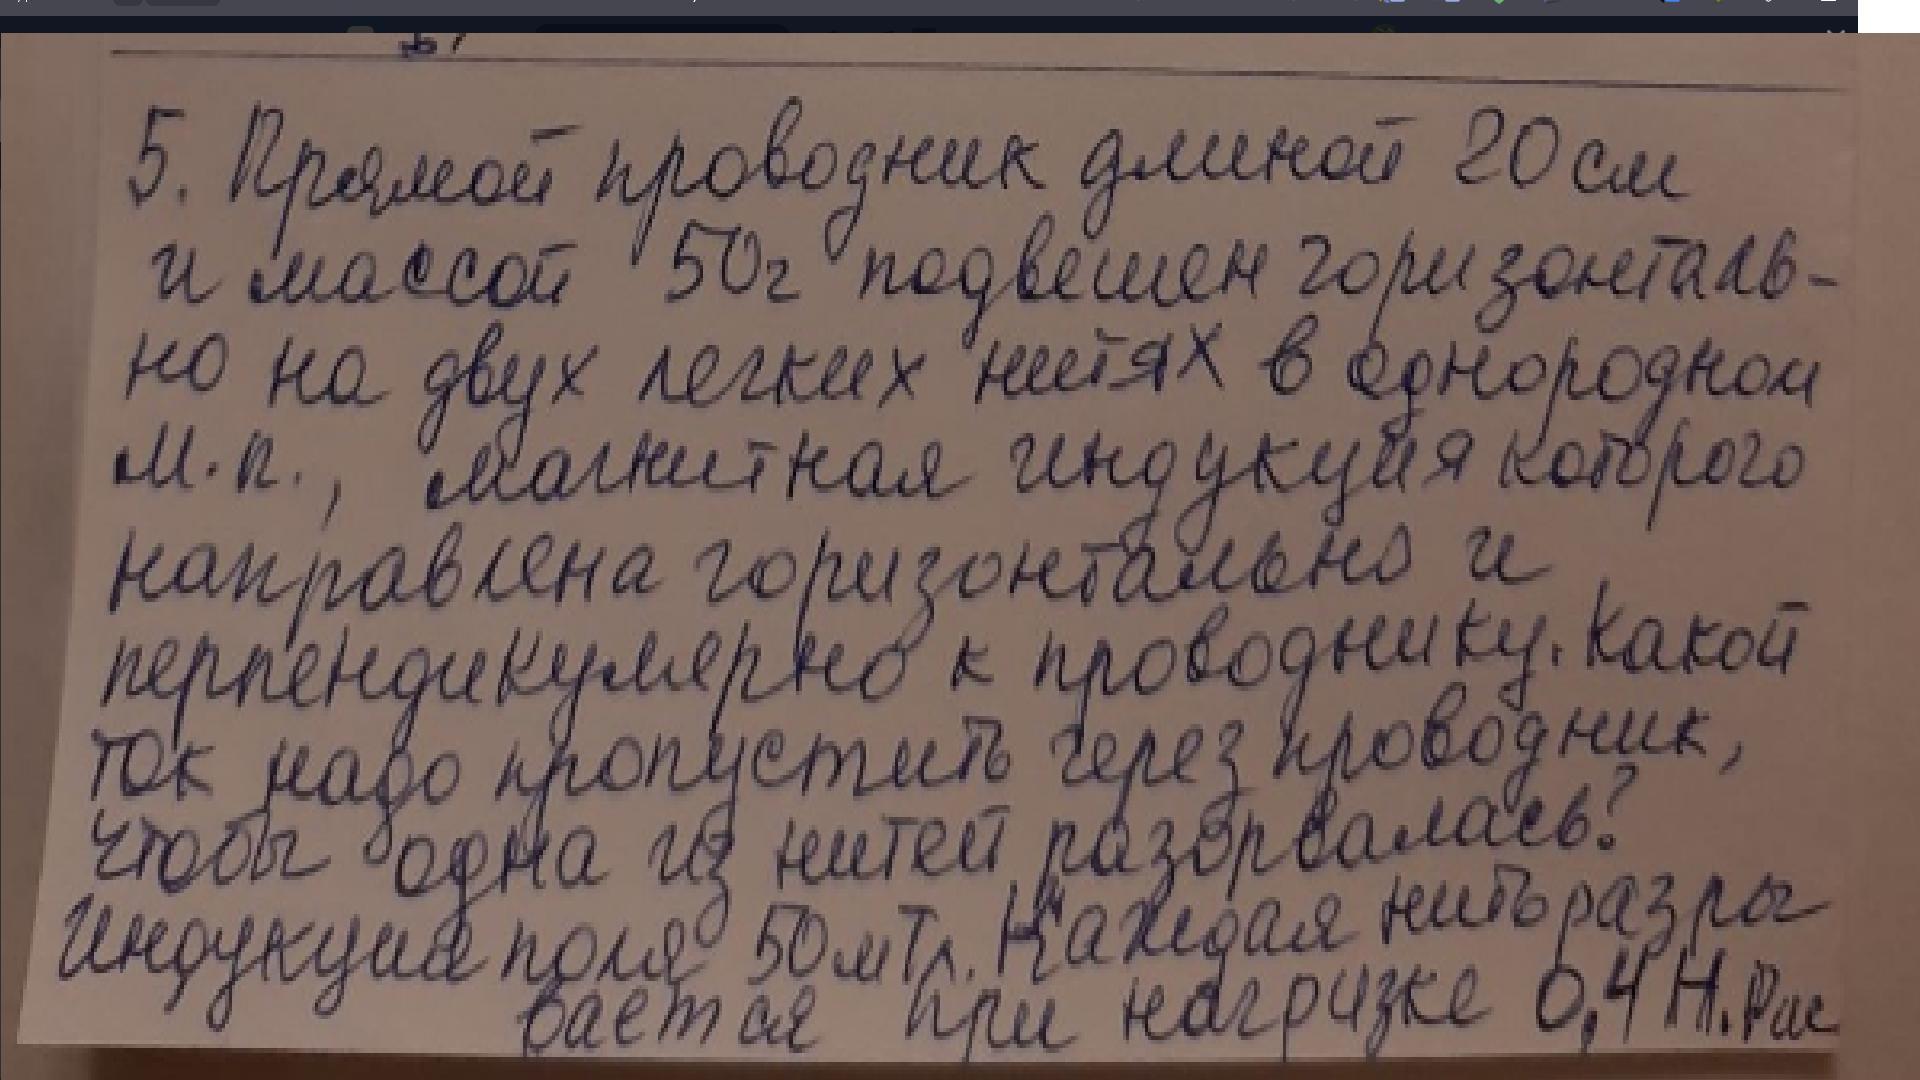 5. Прямой проводник длиной 20 см
и массой 50г подвешен горизонталь-
но на двух легких нитях в однородном
м.п., магнитная индукция которого
направлена горизонтально и
перпендикулярно к проводнику. Какой
ток надо пропустить через проводник,
чтобы одна из нитей разорвалась?
Индукция поля 50 мТл. Каждая нить разры
вается при нагрузке 0,4 Н. Рис